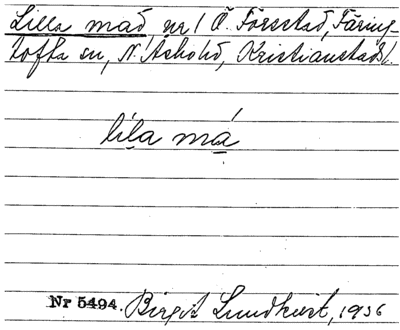 Lilla mad nr 1 Ö. Forestad, Färing-
tofta sn, N. Åsbo hd, Kristianstads l.
lila má
Nr 5494. Birgit Lundkvist, 1936